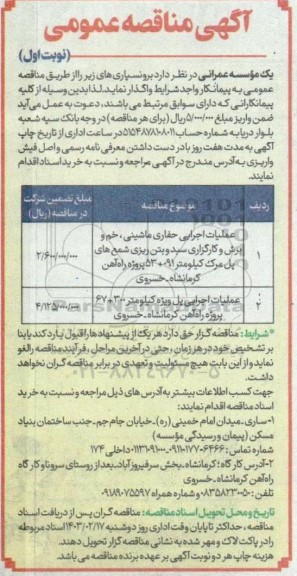 آگهی مناقصه عمومی
(نوبت اول)
یک مؤسسه عمرانی در نظر دارد برونسپاری‌های زیر را از طریق مناقصه
عمومی به پیمانکار واجد شرایط واگذار نماید. لذا بدین وسیله از کلیه
پیمانکارانی که دارای سوابق مرتبط می باشند، دعوت به عمل می‌آید
ضمن واریز مبلغ ۵/۰۰۰/۰۰۰ ریال (برای هر مناقصه) در وجه بانک سپه شعبه
بلوار دریا به شماره حساب در ساعات اداری از تاریخ چاپ
آگهی به مدت هفت روز با در دست داشتن معرفی نامه رسمی و اصل فیش
واریزی به آدرس مندرج در آگهی مراجعه و نسبت به خرید اسناد اقدام
نمایند.
ردیف موضوع مناقصه مبلغ تضمین شرکت
در مناقصه (ریال)
۱ عملیات اجرایی حفاری ماشینی، خم و
برش و کارگذاری سبد و بتن ریزی شمع های
پل مرک کیلومتر ۰۹۱+۵۳ پروژه راه‌آهن
کرمانشاه-خسروی
۲/۶۰۰/۰۰۰/۰۰۰
۲ عملیات اجرایی پل ویژه کیلومتر ۳۰۰+۶۷
پروژه راه‌آهن کرمانشاه-خسروی
۴/۱۲۵/۰۰۰/۰۰۰
*شرایط: مناقصه گزار حق دارد هر یک از پیشنهادها را قبول یا رد کند یا بنا
بر تشخیص خود در هر زمان، حتی در آخرین مراحل، فرآیند مناقصه را لغو
نماید و از این بابت هیچ مسئولیت و تعهدی در برابر مناقصه گران نخواهد
داشت.
جهت کسب اطلاعات بیشتر به آدرس های ذیل مراجعه و نسبت به خرید
اسناد مناقصه اقدام نمایند:
۱-ساری، میدان امام خمینی (ره)، خیابان جام جم، جنب ساختمان بنیاد
مسکن (پیمان و رسیدگی مؤسسه)
شماره تماس: ۰۹۱۱۰۱۷۷۰۶۴۶۶-۰۱۱۳۱۰۹۱۰۰۰ داخلی ۱۷۴
۲-آدرس کارگاه: کرمانشاه، بخش سرفیروزآباد، بعد از روستای سرونو کارگاه
تلفن: ۰۸۳۵۸۲۳۰۰۵۰ و شماره همراه ۰۹۱۸۹۰۷۵۵۹۷
تاریخ و محل تحویل اسناد مناقصه: مناقصه گران پس از دریافت اسناد
مناقصه، حداکثر تا پایان وقت اداری روز دوشنبه ۱۴۰۳/۰۲/۱۷ اسناد مربوطه
را در پاکت لاک و مهر شده به نشانی مناقصه گزار تحویل دهند.
هزینه چاپ هر دو نوبت آگهی بر عهده برنده مناقصه می باشد.